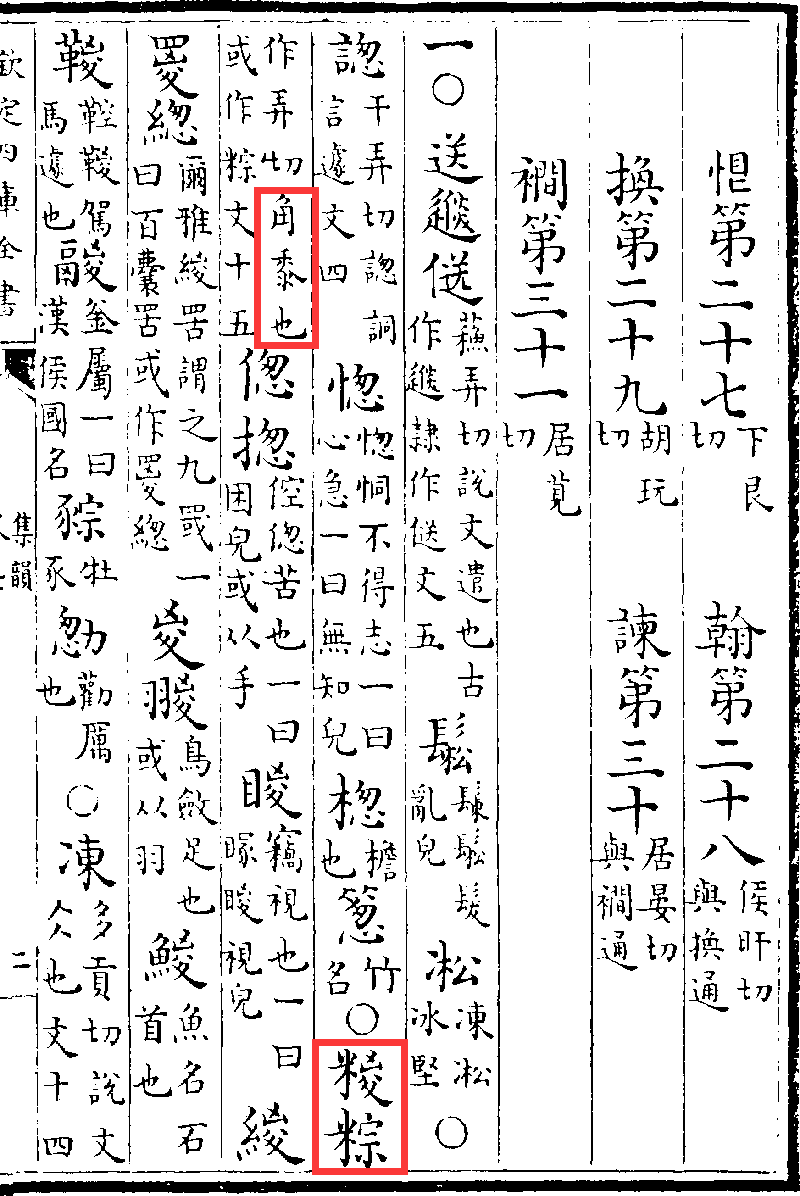 恨第二十七下艮切　翰第二十八侯旰切與換通
換第二十九胡玩切　諫第三十居晏切與襇通
襇第三十一居莧切
一○送䢠𠈹蘇弄切說文遣也古作䢠隸作送文五 鬆鬆鬆髮亂皃 凇凍凇冰堅○
謥千弄切謥詷言遽文四 愡愡恫不得志一曰心急一曰無知皃 楤檐也 䈡竹名○糉粽
作弄切角黍也或作粽文十五 傯揔倥傯苦也一曰困皃或从手 䁓竊視也一曰䁓視皃 緵
緫爾雅緵罟謂之九罭一曰百囊罟或作緫 㚇翪鳥斂足也或从羽 鯼魚名石首也
鞚駕馬遽也 鬷釜屬一曰漢侯國名 牡豕 勸厲也○凍多貢切說文仌也文十四
欽定四庫全書 集韻 二